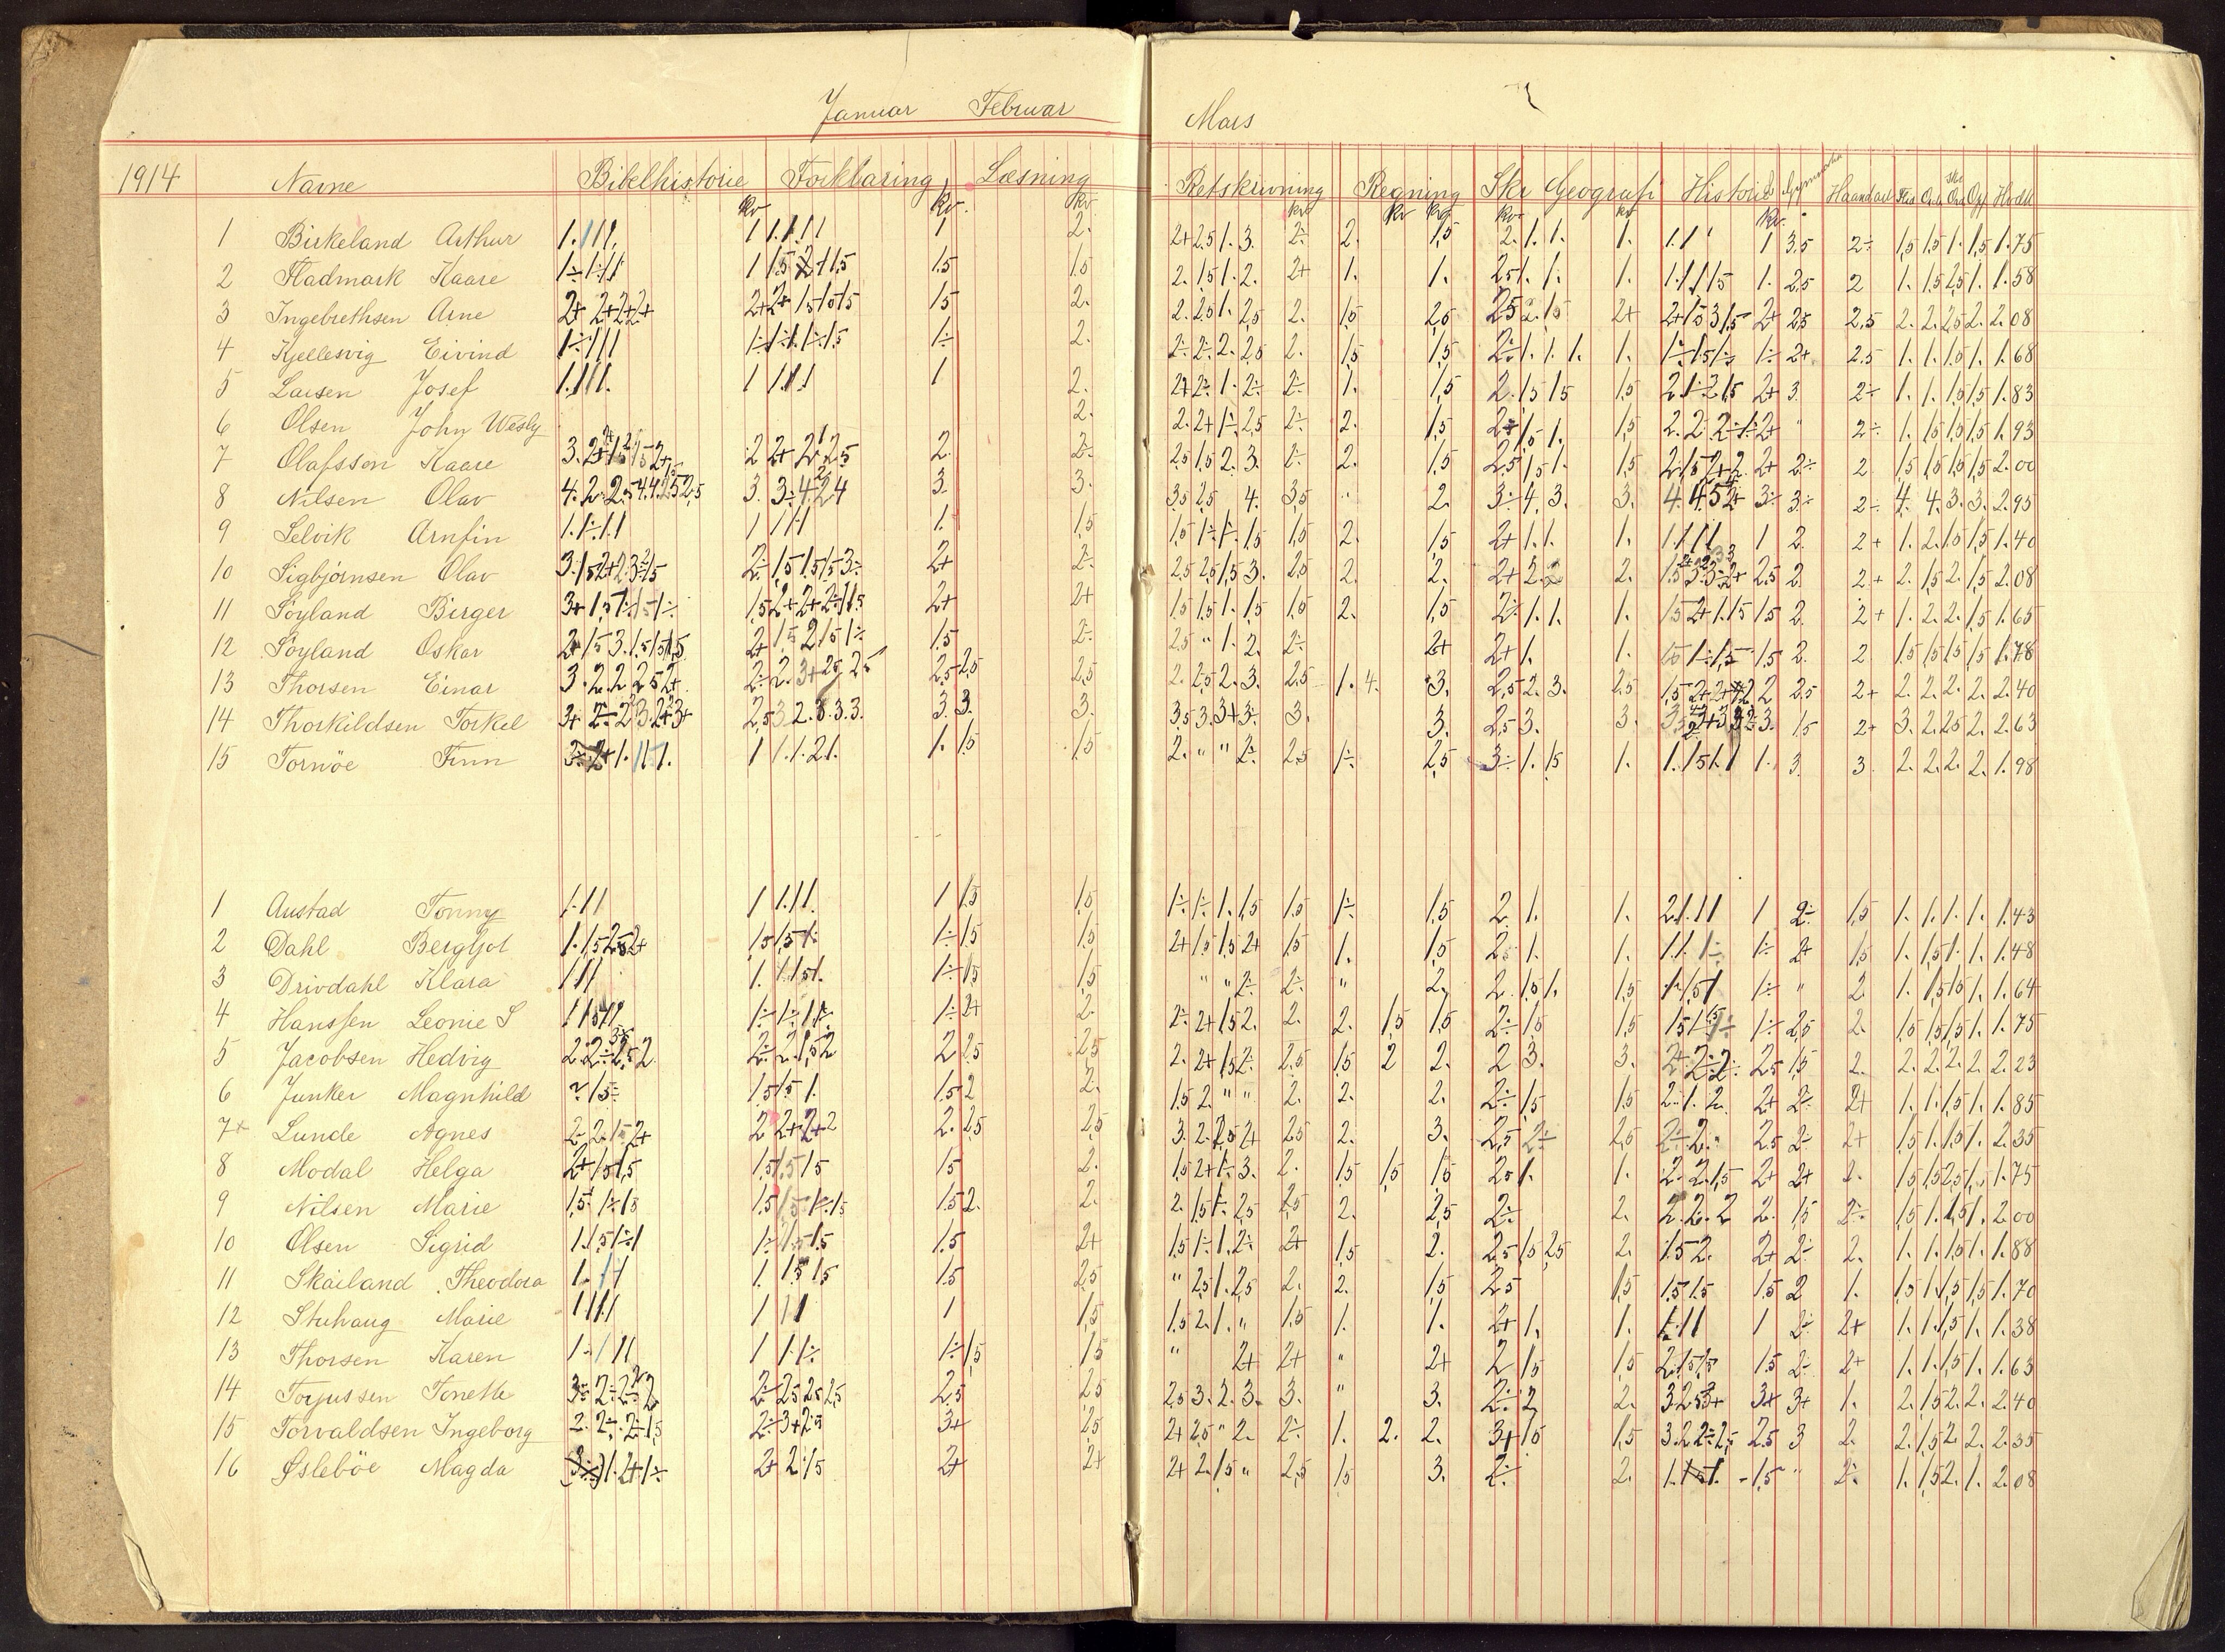 Januar Februar Mars
1914 Navne Bibelhistorie Forklaring Læsning Retskrivning Regning Skr Geografi Historie Haandarb Flid Orden
kv kv. kv. kv kv kv kv kv kv.
1 Birkeland Arthur 1.111. 1 1.1.11 1 2. 2+ 2,5 1. 3. 2÷ 2. 1,5 2. 1. 1. 1. 1.1 1 3,5 2÷ 1,5 1,5 1. 1,5 1.75
2 Fladmark Kaare 1÷1÷11 1 1,5 1,5 2. 1,5 1. 2. 2+ 1. 1. 2,5 1. 1. 1. 1.1.1 1,5 1. 2,5 2 1. 1,5 2,5 1. 1.58
3 Ingebrethsen Arne 2+ 2+2+2+ 2+ 2+ 1,5 1,5 1,5 1,5 2. 2. 2,5 1. 2,5 2. 1,5 2,5 2,5 2. 1,5 2+ 2+ 1,5 3 1,5 2+ 2,5 2,5 2. 2. 2,5 2. 2.08
4 Kjellesvig Eivind 1÷111 1÷ 1÷1.1÷1,5 1÷ 2. 2÷ 2÷ 2. 2,5 2. 1,5 1,5 2÷ 1. 1. 1. 1. 1÷1,5 1÷ 1÷ 2+ 2.5 1. 1. 1,5 1. 1.68
5 Larsen Josef 1.111. 1 1.1.1 1 2. 2+ 2÷ 1. 2÷ 2÷ 1. 1,5 2. 1,5 1,5 1,5 2 1÷ 2 1,5 2+ 3. 2÷ 1. 1. 1,5 1,5 1.83
6 Olsen John Wesly 2. 2. 2+ 1÷ 2,5 2÷ 2. 1,5 2÷ 1,5 1. 1,5 2. 2. 2÷ 1÷ 2+ " 2÷ 1. 1,5 1,5 1,5 1.93
7 Olafsson Kaare 2 2+ 2. 2÷ 2,5 1,5 2. 3. 2÷ 2. 1,5 2,5 1,5 1. 1,5 2. 1,5 2+ 2. 2+ 2÷ 2 1,5 1,5 1,5 1,5 2.00
8 Nilsen Olav 3. 3÷ 3. 3. 3,5 2,5 4. 3,5 " 2. 3÷ 4. 3. 3. 3÷ 3÷ 2÷ 4. 4. 3. 3. 2.95
9 Selvik Arnfin 1.1÷1.1 1 1 1 1 1. 1,5 1,5 1÷ 1÷ 1,5 1,5 2. 1,5 2+ 1. 1. 1. 1.1.1.1 1 2. 2+ 1. 2. 1,5 1,5 1.40
10 Sigbjörnsen Olav 2÷ 1,5 1,5 1,5 3÷ 2+ 2÷ 2,5 2,5 1,5 3. 2,5 2. 2. 2+ 2. 2 2. 2,5 2. 2+ 2. 1,5 2. 1,5 2.08
11 Söyland Birger 3+ 1,5 1÷ 1,5 1÷ 1,5 2+ 2+ 2÷ 1 1,5 2+ 2+ 1,5 1,5 1. 1,5 1,5 2. 1,5 2÷ 1. 1. 1. 1,5 2+ 1. 1,5 1,5 2. 2+ 1. 2. 2. 1,5 1.65
12 Söyland Oskar 2+ 1,5 3. 1,5 1,5 1,5 2+ 1,5 2 1,5 1÷ 1.5 2÷ 2,5 " 1. 2. 2÷ 2+ 2+ 1. 1. 1,5 1÷ 1,5 1,5 2. 2 1,5 1,5 1,5 1,5 1.78
13 Thorsen Einar 3. 2. 2. 2,5 2+ 2÷ 2. 3+ 2,5 2,5 2,5 2,5 2,5 2. 2,5 2. 3. 2,5 1. 4. 3. 2,5 2. 3. 2,5 2 2,5 2+ 2. 2. 2. 2. 2.40
14 Thorkildsen Torkel 2,5 3. 2. 3. 3. 3. 3. 3. 3. 3,5 3. 3+ 3÷ 3. 3. 2,5 3. 3. 3. 1,5 2+ 3. 2. 2,5 2. 2.63
15 Tornöe Finn 1 1.1.2 1. 1. 1,5 1,5 2. " " 2÷ 2,5 1÷ 2,5 3÷ 1. 1,5 1. 1.1,5 1.1 1. 3. 3 2. 2. 2. 2. 1.98
1 Austad Tonny 1.11 1 1.11. 1 1,5 1,5 1÷ 1÷ 1. 1,5 1,5 1÷ 1,5 2. 1. 1. 2.1.11 1 2÷ 1,5 1. 1. 1. 1. 1.43
2 Dahl Bergljot 1. 1,5 2,5 2+ 1,5 1,5 1÷ 1÷ 1,5 1,5 2+ 1,5 1,5 2+ 1,5 1. 1,5 2,5 1. 1. 1.1. 1÷ 1÷ 2+ 1,5 1. 1,5 1. 1. 1.48
3 Drivdahl Klara 111 1. 1.1,5 1. 1÷ 1,5 1,5 " " 2÷ 2÷ " 2. 2. 1,5 1. 1,5 1. 1,5 1 1÷ " 2. 1. 1,5 1,5 1. 1.64
4 Hanssen Leonie S 1÷ 1÷ 1 1÷ 1÷ 2+ 2. 2÷ 2+ 1,5 2. 2. 2. 1,5 1,5 2÷ 1,5 1,5 1÷ 2,5 2. 1,5 1,5 1,5 1. 1.75
5 Jacobsen Hedvig 2÷ 2. 1,5 2 2 2,5 2,5 2. 2+ 1,5 2÷ 2,5 1,5 2 2. 2 3. 3. 2+ 2÷ 2÷ 2,5 1,5 2. 2. 2. 2. 2. 2.23
6 Junker Magnhild 1,5 1,5 1. 1,5 2 2. 1,5 2. " " 2. 2. 2. 2÷ 1,5 1,5 2. 1. 2. 2+ 2÷ 2+ 1. 1. 1,5 1. 1.85
7+ Lunde Agnes 2÷ 2. 1,5 2+ 2 2+ 2+ 2 2. 2,5 2,5 3. 2. 2,5 2+ 2,5 2. 3. 2,5 2÷ 2,5 2÷ 2. 2,5 2÷ 2+ 1,5 1. 1,5 1. 2.35
8 Modal Helga 2+ 1,5 1,5 1,5 1,5 1,5 1,5 2. 1,5 2+ 1÷ 3. 2. 1,5 1,5 1,5 2,5 1. 1. 2. 2. 1,5 2+ 2+ 2. 1,5 1,5 2,5 1. 1.75
9 Nilsen Marie 1,5 1÷ 1,5 1,5 1,5 1÷ 1,5 1,5 2. 2. 2. 1,5 1÷ 2,5 2,5 2. 2,5 2÷ 2. 2. 2. 2 2. 1,5 2÷ 1,5 1. 1,5 1. 2.00
10 Olsen Sigrid 1.1,5 1÷1 1÷ 1,5 1,5 1,5 2+ 1,5 1÷ 1. 2÷ 2+ 1,5 2. 2,5 1,5 2,5 2. 1,5 2. 2+ 2÷ 2. 1. 1. 1,5 1. 1.88
11 Skailand Theodora 1. 1 1 1. 1,5 1,5 1,5 2,5 " 2,5 1. 2,5 2. 2. 1,5 2,5 1,5 1,5 1,5 1,5 2 1. 1,5 1. 1,5 1,5 1.70
12 Stuhaug Marie 1111 1 111 1 1,5 1,5 2. 1. " 1,5 1. 1. 2+ 1. 1. 1.11 1 2÷ 2+ 1. 1. 1,5 1. 1.38
13 Thorsen Karen 1. 1 11 1 1.1÷ 1÷ 1,5 1,5 " 2+ 2+ " 2+ 2 1,5 1,5 2. 1,5 1,5 1,5 2÷ 2+ 1. 1. 1,5 1. 1.63
14 Torjussen Tonette 2÷ 2,5 2,5 2,5 2,5 2,5 2,5 3. 2. 3. 3. " 3. 2÷ 2 2. 3 2,5 3+ 3+ 3+ 1. 2. 1,5 2. 2. 2.40
15 Torvaldsen Ingeborg 2. 2÷ 2÷ 1,5 2÷ 3+ 2,5 3+ 2,5 2+ 2,5 " 2. 2÷ 1. 2. 2. 3+ 1,5 1,5 3. 2 2÷ 2,5 2,5 3 2. 2. 1,5 2. 2. 2.35
16 Øslebøe Magda 1. 2+ 1÷ 2+ 2. 1,5 2+ 2+ 2+ 2. 1,5 " 2,5 1,5 3. 2÷ 2. 1. 1,5 1. 1,5 " 2÷ 1. 1,5 2. 1. 2.08